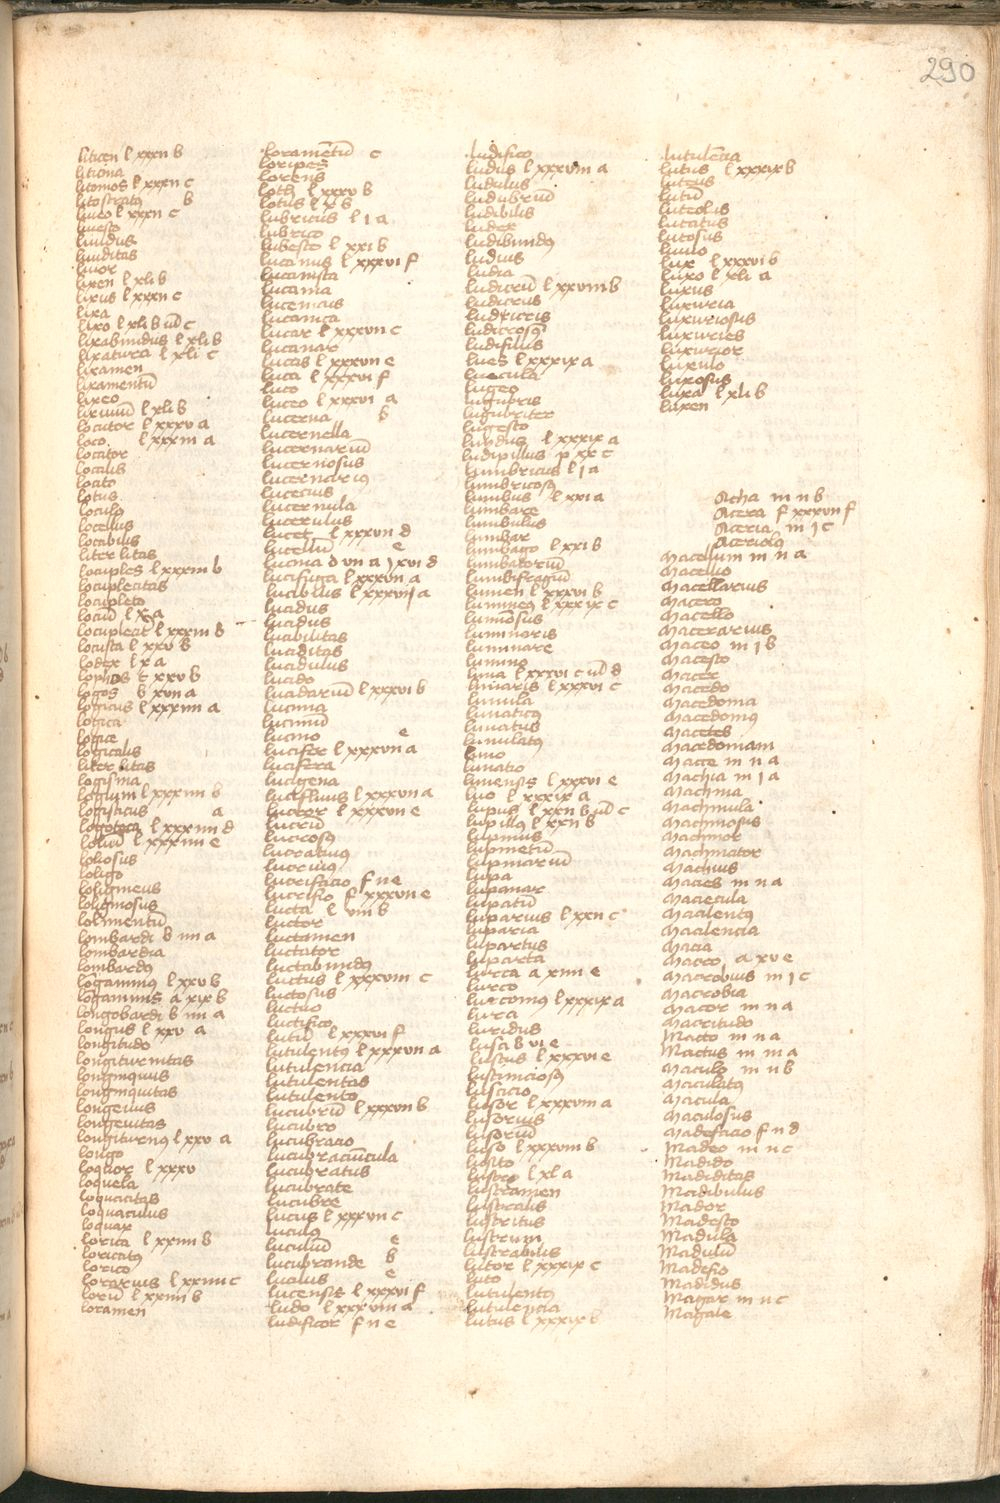 290
liticen l xxxii b
liticina
litomos l xxxii c
litostratus b
liueo l xxxii c
liuesco
liuidus
liuiditas
liuor
lixen l xli b
lixus l xxxii c
lixa
lixo l xli b uel c
lixabundus l xli b
lixatura l xli c
lixamen
lixamentū
lixeo
lixiuiū l xli b
locutor l xxxv a
loco l xxxiii a
locator
localis
locito
lotus
loculus
locellus
locabilis
locuples l xxxiii b
locuplecitas
locupleto
locusta l xxv b
lodex l x a
logos b xvii a
logicus l xxxiiii a
logica
logice
logicalis
logisma
logisticus a
lolium l xxxiiii e
loliosus
loligo
loligineus
loliginosus
lombardi b iiii a
lombardia
lombardus
longobardi b iiii a
longus l xxv a
longitudo
longiturnitas
longinquus
longinquitas
longeuus
longeuitas
longiturnus l xxv a
longo
loquor l xxxv
loquela
loquacitas
loquaculus
loquax
lorica l xxiiii b
loricatus
lorico
lorarius l xxiiii c
loriū l xxiiii b
loramen
loramētū c
loripes
lorens
loth l xxxv b
lotus l x b
lubricus l i a
lubrico
lubesco l xxi b
lucanus l xxxvi f
lucanista
lucania
lucanica
lucar l xxxvii c
lucanar
lucas l xxxvii e
luca l xxxvi f
luco
luceo l xxxvi a
lucerna b
lucernella
lucernariū
lucernosus
lucernarius
lucernula
lucerulus
lucet l xxxvii d
lucellū e
lucifuga l xxxvii a
lucibilis l xxxvii a
lucidus
lucidus
lucibilitas
luciditas
lucidulus
lucido
lucidariū l xxxvi b
lucina
luciniū
lucino e
lucifer l xxxvii a
lucifera
lucigena
lucifluus l xxxvii a
lucror l xxxvii e
lucrū
lucrosus
lucratiuus
lucrifacio f ii e
lucrifio f xxxvii e
lucta l viii b
luctor
luctamen
luctator
luctabundus
luctus l xxxviii c
luctosus
luctuo
luctifico
lutū l xxxvi f
lutulentus l xxxvii a
lutulencia
lutulentas
lutulento
lucubrū l xxxvii b
lucubro
lucubracio
lucubraciūcula
lucubratus
lucubrate
lucubre
lucus l xxxvii c
luculus
luculiū e
lucubrande b
lucensis l xxxvi f
ludo l xxxviii a
ludificor f ii e
ludifico
ludus l xxxviii a
ludulus
ludubriū
ludibilis
luder
ludibundus
ludius
ludia
ludicrū l xxxviii b
ludicrus
ludicrosus
lues l xxxix a
luecula
lugeo
lugubris
lugubriter
lugesco
lumbricus l i a
lumbricosus
lumbus l xxi a
lumbare
lumbulus
lumbar
lumbago l xxi b
lumbatoriū
lumbifragiū
lumen l xxxvi b
lumineus l xxxix c
luminosus
luminaris
luminare
lumino
luna l xxxvi c uel d
lunaris l xxxvi c
lunula
lunaticus
lunatus
lunulatus
luno
lunatio
lunensis l xxxvi e
luo l xxxix a
lupus l xxii b uel c
lupillus l xxii b
lupinus
lupinetū
lupinariū
lupa
lupanar
lupatū
luparius l xxii c
luparia
lupartus
luparta
lurca a xiiii e
lurco
lurconius l xxxix a
lura
luridus
lusca b vi e
luscus l xxxvi e
luscinciosus
luscicio
lusor l xxxviii a
lusorius
lusoriū
luso l xxxviii b
lusito
lustro l xl a
lustramen
lustralis
lustritus
lustrum
lustrabilis
lutor l xxxix c
luto
lutulentus
lutulencia
lutus l xxxix b
lutulēcia
lutus l xxxix b
luteus
lutū
luteolus
lutatus
lutosus
lutulo
lux l xxxvi b
luxo l xli a
luxus
luxuria
luxuriosus
luxuries
luxurior
luxulo
luxosus
luxa l xli b
luxen
Acha m ii b
Acera f xxxvii f
Aceria m i c
Aceriolus
Macellum m ii a
Macellio
Macellarius
Macero
Macello
Macerarius
Maceo m i b
Macesco
Macer
Macedo
Macedonia
Macedonius
Macetes
Macedoniam
Macte m ii a
Machia m i a
Machina
Machinula
Machinosus
Machinor
Machinator
Machius
Macies m ii a
Maciecula
Macilentus
Macilencia
Macia
Macro a xv e
Macrobius m i c
Macrobia
Macor m ii a
Macritudo
Macto m ii a
Mactus m iii a
Maculo m ii b
Maculatus
Macula
Maculosus
Madefacio f ii d
Madeo m ii c
Madido
Madiditas
Madibulus
Mador
Madesco
Madula
Madulū
Madefio
Madidus
Magar m ii c
Magale